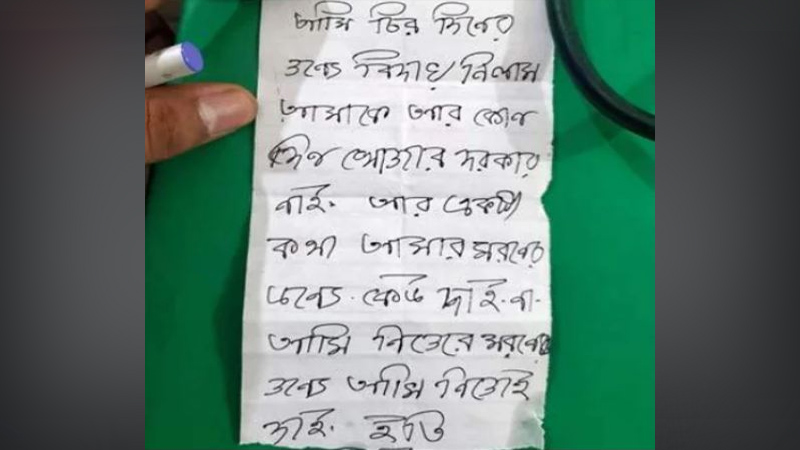 আমি চির দিনের
জন্যে বিদায় নিলাম
আমাকে আর কোন
দিন খোজার দরকার
নাই. আর একটা
কথা আমার মরনের
জন্যে. কেউ দাই. না.
আমি নিজের মরনের
জন্যে আমি নিজেই
দাই. ইতি